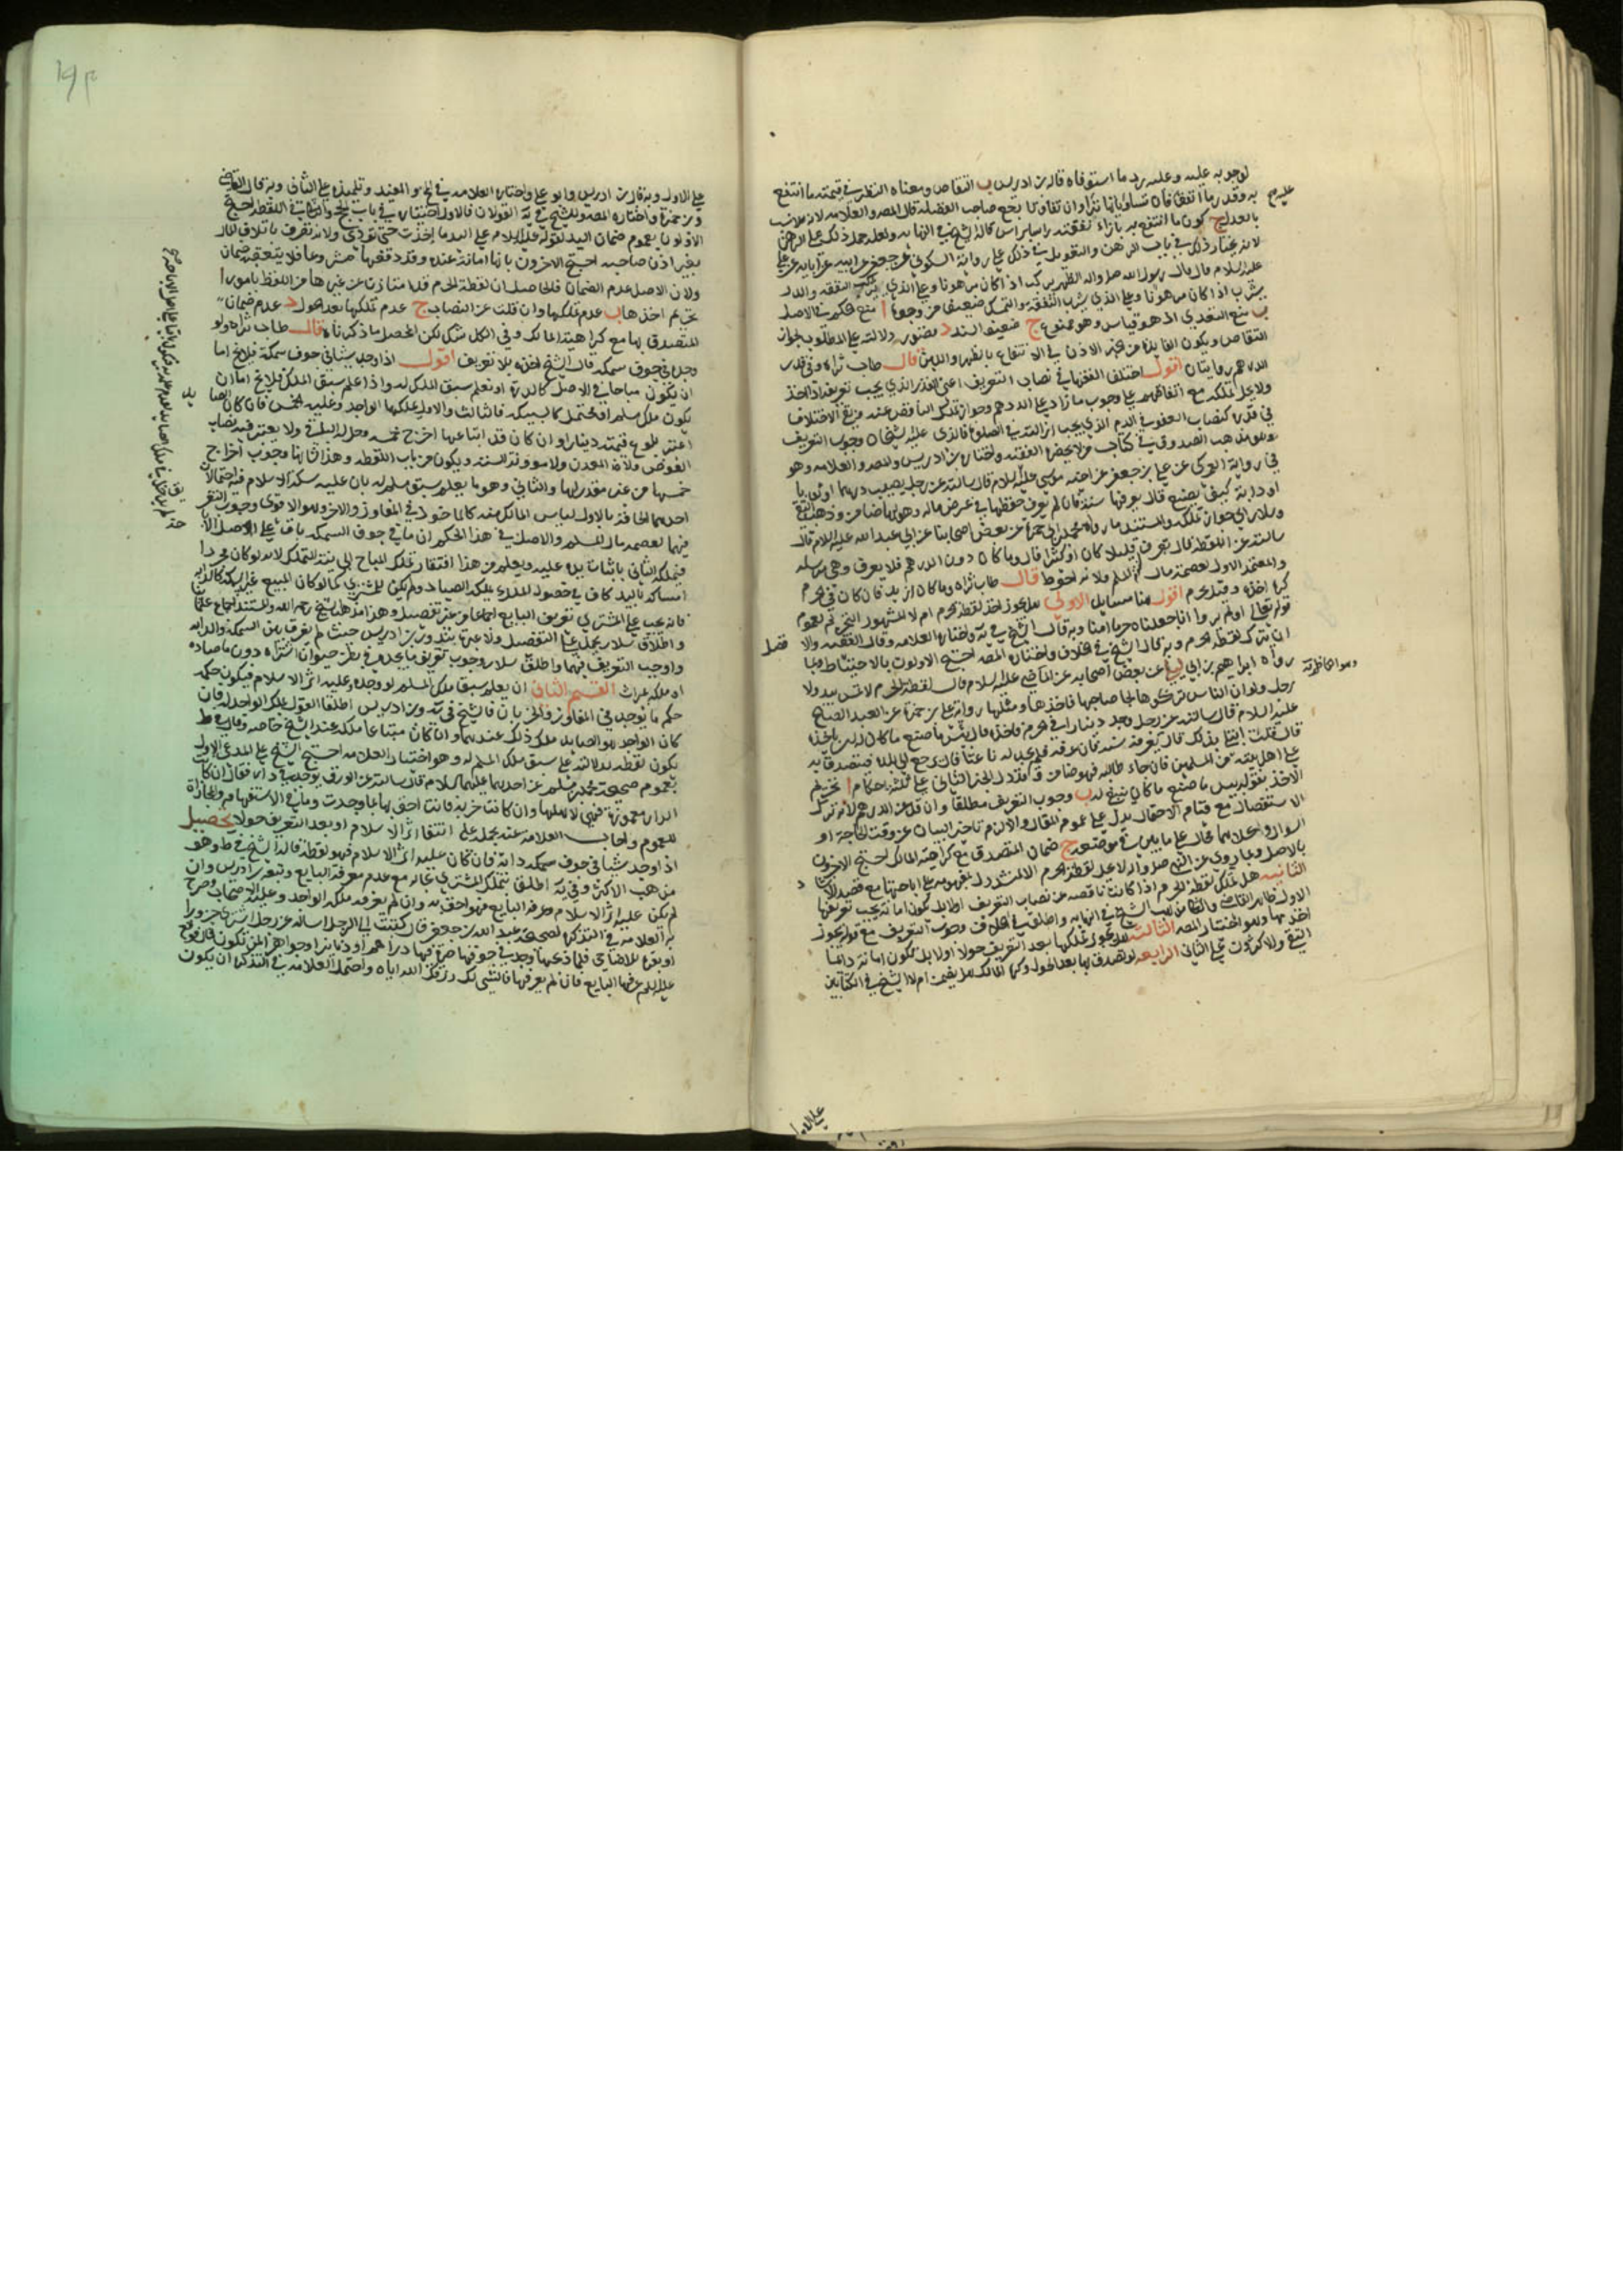 لوجوبه عليه وعليه رد ما استوفاه قاله بن ادريس ب التقاص ومعناه النظر في قيمة ما انتفع
به وقدر ما انفق فان تساويا تهاترا وان تفاوتا رجع صاحب الفضلة قال المصه والعلامه لانه لا نسب
بالعدل ج كون ما انتفع به بازاء نفقته راسا براس قاله الشيخ في النهايه ولعله حمل ذلك على الرهن
لانه يختار ذلك في باب الرهن والتعويل في ذلك على رواية السكوني عن جعفر عن ابيه عن ابائه عن علي
عليه السلام قال قال رسول الله صل واله الظهر يركب اذا كان مرهونا وعلى الذي يركب النفقه والدر
يشرب اذا كان مرهونا وعلى الذي يشرب النفقة والتمسك ضعيف من وجوه ا منع الحكم في الاصل
ب منع التعدي اذ هو قياس وهو ممنوع ج ضعيف السند د قصور دلالته على المطلوب لجواز
التقاص ويكون الفايده من غير الاذن في الانتفاع بالظهر واللبن قال طاب ثراه وفي قدر
الدرهم روايتان اقول اختلف الفقها في نصاب التعريف اعني القدر الذي يجب تعريفه اذا اخذ
ولا يحل تملكه مع اتفاقهم على وجوب ما زاد على الدرهم وجواز تملك الناقص عنه من غير الاختلاف
في قدره كنصاب العفو في الدم الذي يجب ازالته في الصلوة فالذي عليه الشيخان وجوب التعريف
وهو مذهب الصدوق في كتاب من لا يحضره الفقيه واختاره بن ادريس والمصه والعلامه وهو
في رواية العمركي عن علي بن جعفر عن اخيه موسى عليه السلام قال سالته عن رجل يصيب درهما او ثوبا
او دابة كيف يصنع قال يعرفها سنة فان لم يعرف حفظها في عرض ماله وهو لها ضامن وذهب التقي
وسلار الى جواز تملكه والمستند ما رواه محمد بن ابي حمزة عن بعض اصحابنا عن ابي عبد الله عليه السلام قال
سالته عن اللقطة قال تعرف قليلا كان او كثيرا قال وما كان دون الدرهم فلا يعرف وهي مرسله
والمعتمد الاول لعصمة مال المسلم ولانه احوط قال طاب ثراه وما كان ازيد فان كان في الحرم
كره اخذه وقيل يحرم اقول هنا مسايل الاولى هل يجوز اخذ لقطة الحرم ام لا المشهور التحريم لعموم
قوله تعالى اولم يروا انا جعلناه حرما امنا وبه قال الشيخ في يه واختاره العلامه وقال الفقيه والا فضل
ان يترك لقطة الحرم وبه قال الشيخ في الخلاف واختاره المصه احتج الاولون بالاحتياط وبما
رواه ابراهيم بن ابي البلاد عن بعض اصحابه عن الماضي عليه السلام قال لقطة الحرم لا تمس بيد ولا
رجل ولو ان الناس تركوها لجا صاحبها فاخذها ومثلها رواية علي بن حمزة عن العبد الصالح
عليه السلام قال سالته عن رجل وجد دينارا في الحرم فاخذه قال بئس ما صنع ما كان ينبغي له ان ياخذه
قال قلت ابتلي بذلك قال يعرفه سنه قال عرفه فلم يجد له باغيا قال يرجع الى بلده فيتصدق به
على اهل بيت من المسلمين فان جاء طالبه فهو ضامن وقد دل الخبر الثاني على ثلثة احكام ا تحريم
الاخذ بقوله بئس ما صنع ما كان ينبغي له ب وجوب التعريف مطلقا وان قل عن الدرهم لانه ترك
الاستفصال مع قيام الاحتمال يدل على عموم المقال والا لزم تاخير البيان عن وقت الحاجة او
السوال وكلاهما محال على ما بين في موضعه ج ضمان المتصدق مع كراهية المالك احتج الاخرون
بالاصل وبما روي عن النبي صل واله لا تحل لقطة الحرم الا لمنشد دل بمفهومه على اباحتها مع قصد الانشاد
الثانيه هل تملك لقطة الحرم اذا كانت ناقصه عن نصاب التعريف او لا بل تكون امانة يجب تعريفها
الاول ظاهر القاضي والثاني مذهب الشيخ في النهايه واطلق في الخلاف وجوب التعريف مع قوله بجواز
اخذها وهو اختيار المصه الثالثه هل يجوز تملكها بعد التعريف حولا او لا بل تكون امانة دائما
التقي والاكثرون على الثاني الرابعه لو تصدق بها بعد الحول وكره المالك هل يضمن ام لا الشيخ في الكتابين
على الاول وبه قال بن ادريس وابو علي واختاره العلامه في لح والمفيد وتلميذه على الثاني وبه قال القاضي
وبن حمزة واختاره المصه وللشيخ في يه القولان فالاول اختياره في باب الحج والثاني في اللقطه احتج
الاولون بعموم ضمان اليد لقوله عليه السلام على اليد ما اخذت حتى تؤدي ولانه تصرف باتلاف المال
بغير اذن صاحبه احتج الاخرون بانها امانة عنده وقد دفعها دفعا مشروعا فلا يتعقبه ضمان
ولان الاصل عدم الضمان فالحاصل ان لقطة الحرم قد امتازت عن غيرها من اللقط بامور ا
تحريم اخذها ب عدم تملكها وان قلت عن النصاب ج عدم تملكها بعد الحول د عدم ضمان
المتصدق بها مع كراهية المالك وفي الكل شك لكن المحصل ما ذكرناه قال طاب ثراه ولو
وجد في جوف سمكه قال الشيخ اخذه بلا تعريف اقول اذا وجد شيئا في جوف سمكة فلا يخ اما
ان يكون مباحا في الاصل كالدرة او نعلم سبق الملك له واذا علم سبق الملك فلا يخ اما ان
يكون ملك مسلم او محتمل كالسبيكه فالثالث والاول يملكها الواجد وعليه الخمس فان كان
اعتبر بلوغ قيمته دينارا وان كان قد ابتاعها اخرج خمسه وحل له الباقي ولا يعتبر فيه نصاب
الغوص ولا المعدن ولا موونة السنه ويكون من باب اللقطه وهذا ثالثها وجوب اخراج
خمسها من غير مقدر لها والثاني وهو ما يعلم سبق مسلم له بان عليه سكة الاسلام فيه احتمالان
احدهما الحاقه بالاول لياس المالك منه كالماخوذ في المفاوز والاخر وهو الاقوى وجوب التعريف
فيهما لعصمه مال المسلم والاصل في هذا الحكم ان ما في جوف السمكه باق على الاصل الاباحه
فيملكه الثاني باثبات يده عليه ويعلم من هذا افتقار تملك المباح الى نية التملك لانه لو كان مجرد
امساكه باليد كاف في حصول الملك يملكه الصياد ولم يكن للمشتري كما لو كان المبيع غير السمكه كالدابه
فانه يجب على المشتري تعريف البايع اجماعا من غير تفصيل وهذا مذهب الشيخ رحمه الله والمستند اجماع علمائنا
واطلاق سلار يحمل على التفصيل ولا عبره بتردد بن ادريس حيث لم يفرق بين السمكه والدابه
واوجب التعريف فيهما واطلق سلار وجوب تعريف ما يجده في بطن حيوان اشتراه دون ما صاده
او ملكه بميراث القسم الثاني ان يعلم سبق ملك المسلم لو وجده وعليه اثر الاسلام فيكون حكمه
حكم ما يوجد في المفاوز والخربات فالشيخ في يه وبن ادريس اطلقا القول بملك الواجد له فان
كان الواجد هو الصايد ملك ذلك عندهما وان كان مبتاعا ملكه عند الشيخ خاصه وقال في ط
يكون لقطه لدلالته على سبق ملك المسلم له وهو اختيار العلامه احتج الشيخ على المدعى الاول
بعموم صحيحة محمد بن مسلم عن احدهما عليهما السلام قال سالته عن الورق يوجد في دار فقال ان كانت
الدار معمورة فهي لاهلها وان كانت خربة فانت احق بها بما وجدت وما في الاستفهام والمجازاة
للعموم واجاب العلامه عنه بحمله على انتفا اثر الاسلام او بعد التعريف حولا تحصيل
اذا وجد شيئا في جوف سمكه دابة فان كان عليه اثر الاسلام فهو لقطة قاله الشيخ في ط وهو
مذهب الاكثر وفي يه اطلق بتملك المشتري بحاله مع عدم معرفة البايع وتبعه بن ادريس وان
لم يكن عليه اثر الاسلام عرفه البايع فهو احق به وان لم يعرفه ملكه الواجد وعليه الاصحاب وصرح
به العلامه في التذكره لصحيحة عبد الله بن جعفر قال كتبت الى الرجل اساله عن رجل اشترى جزورا
او بقرة للاضاحي فلما ذبحها وجد في جوفها صرة فيها دراهم او دنانير او جواهر لمن تكون قال فوقع
عليه السلام عرفها البايع فان لم يعرفها فالشي لك رزقك الله اياه واحتمل العلامه في التذكره ان يكون